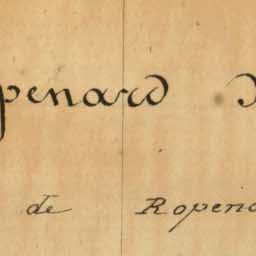 penard
de Ropen